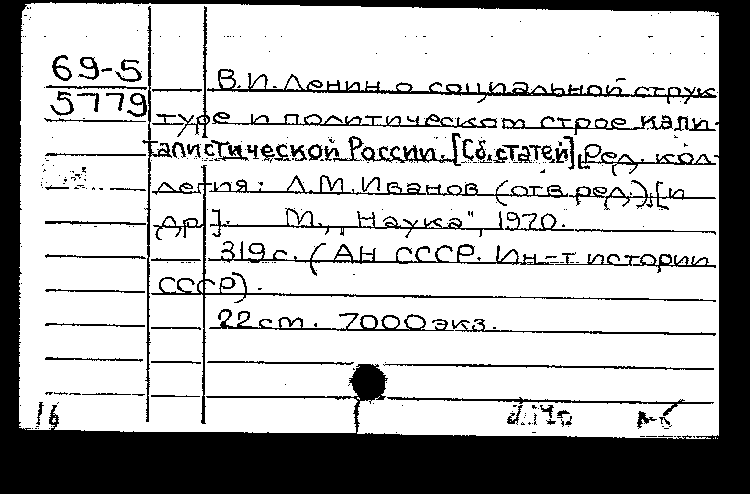 69-5
5779
В.И.Ленин о социальной струк
туре и политическом строе капи-
талистической России. [Сб. статей]. Ред. кол-
легия: Л.М. Иванов (отв. ред.), [и
др.]. М., „Наука", 1970.
319 с. (АН СССР. Ин-т истории
СССР).
22 см. 7000 экз.
16